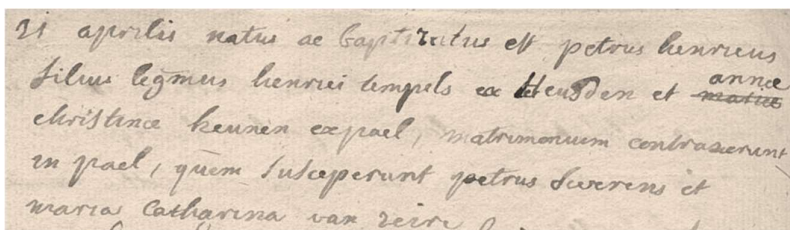 21 aprilis natus ac baptizatus est petrus henricus
filius legmus henrici tempels ex Heusden et annæ
christinæ keunen ex pael, matrimonium contraxerunt
in pael, quem susceperunt petrus Sverens et
maria Catharina van